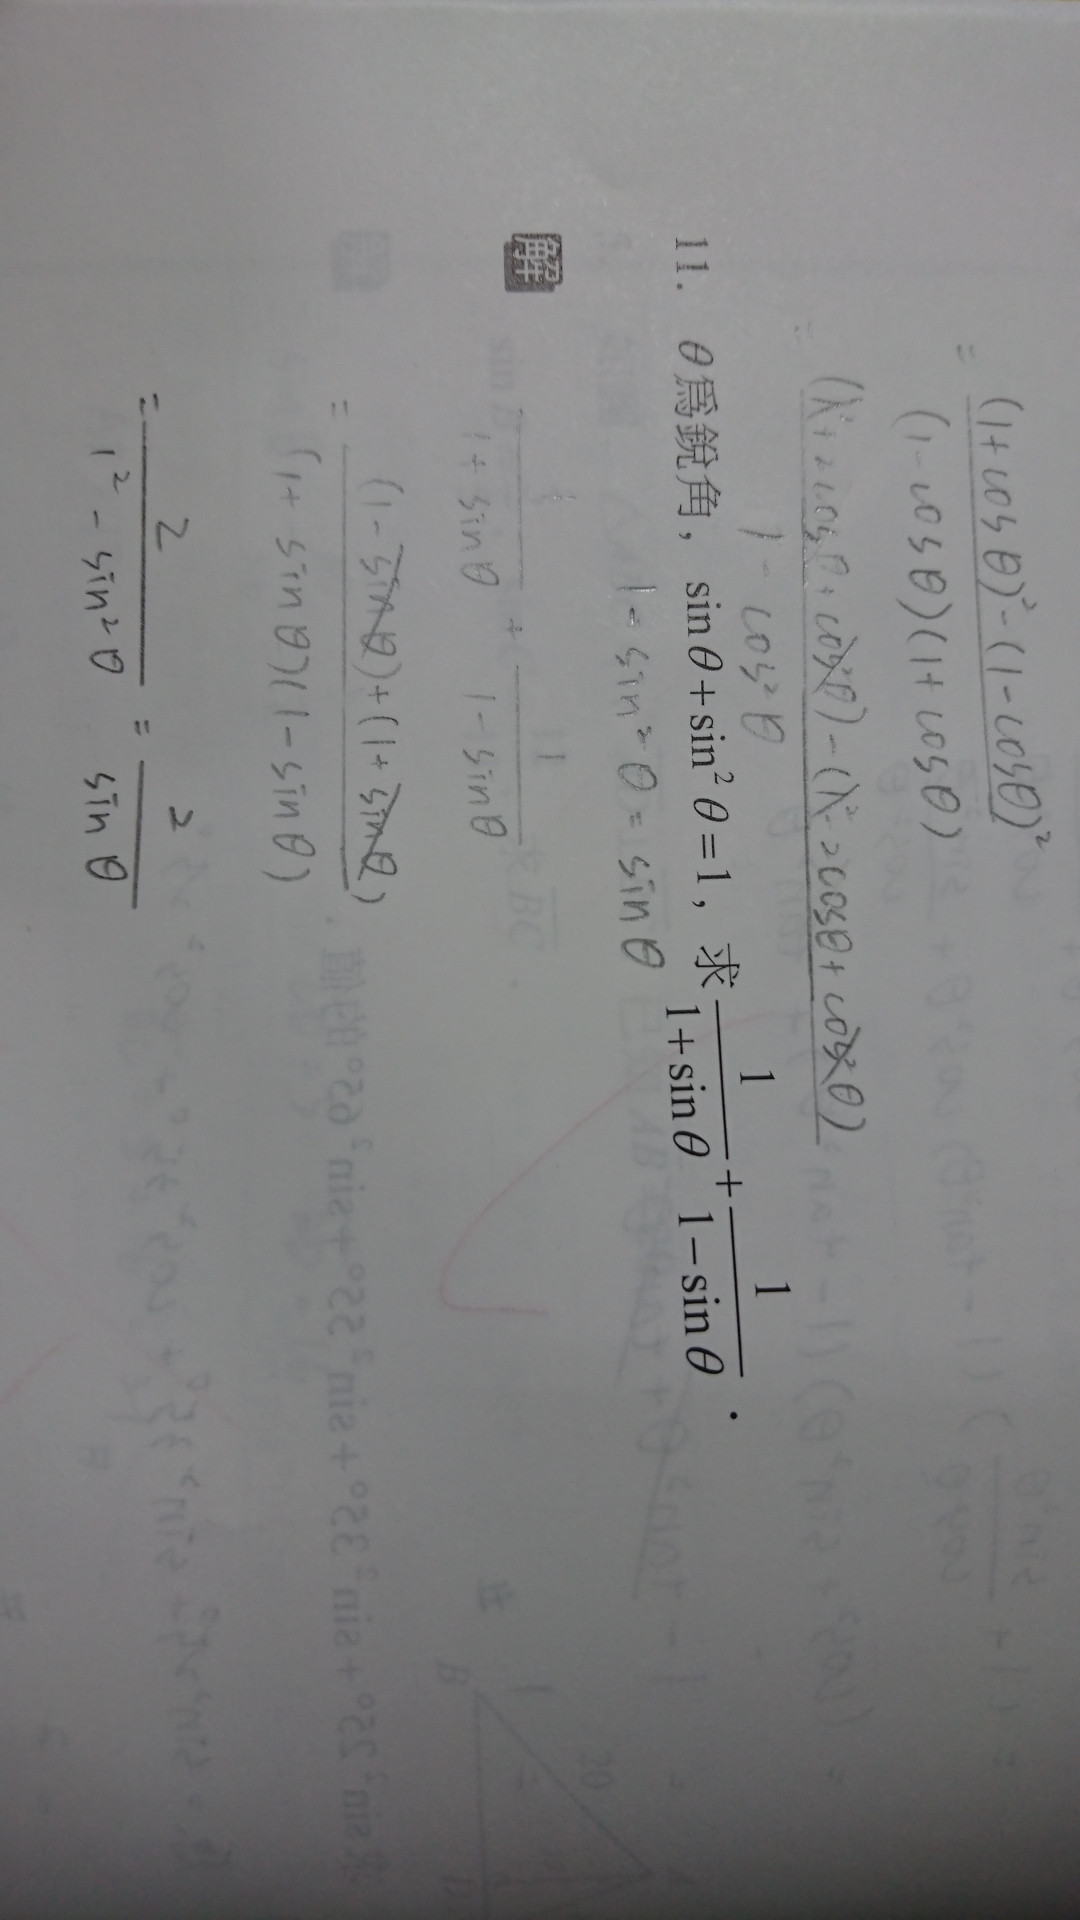 = (1+cosθ)² - (1-cosθ)²
(1-cosθ)(1+cosθ)
= (1²+2cosθ+cos²θ) - (1²-2cosθ+cos²θ)
1-cos²θ
11. θ為銳角，sinθ+sin²θ=1，求 1/(1+sinθ) + 1/(1-sinθ) .
1-sin²θ=sinθ
解
1/(1+sinθ) + 1/(1-sinθ)
= (1-sinθ)+(1+sinθ)
(1+sinθ)(1-sinθ)
= 2/(1²-sin²θ) = 2/sinθ